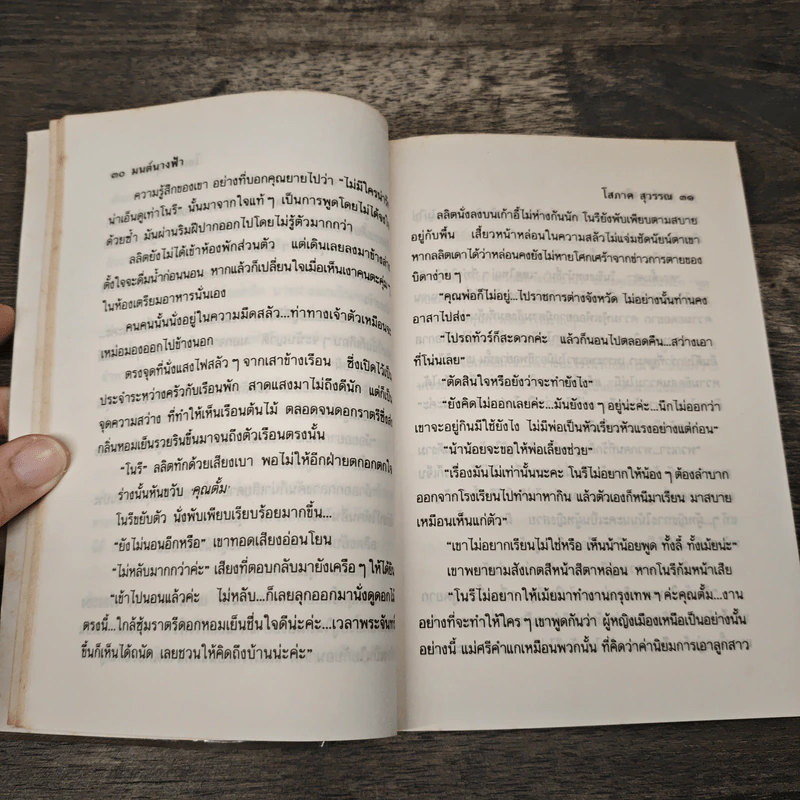 ๓๐ มนต์นางฟ้า
ความรู้สึกของเขา อย่างที่บอกคุณยายไปว่า “ไม่มีใครน่ารัก
น่าเอ็นดูเท่าโนรี” นั้นมาจากใจแท้ๆ เป็นการพูดโดยไม่ได้
ด้วยซ้ำ มันผ่านริมฝีปากออกไปโดยไม่รู้ตัวมากกว่า
ลลิตยังไม่ได้เข้าห้องพักส่วนตัว แต่เดินเลยลงมาข้างล่าง
ตั้งใจจะดื่มน้ำก่อนนอน หากแล้วก็เปลี่ยนใจเมื่อเห็นเงาคนตะคุ่มๆ
ในห้องเตรียมอาหารนั่นเอง
คนคนนั้นนั่งอยู่ในความมืดสลัว...ท่าทางเจ้าตัวเหมือนจะ
เหม่อมองออกไปข้างนอก
ตรงจุดที่นั่งแสงไฟสลัวๆ จากเสาข้างเรือน ซึ่งเปิดไว้เป็น
ประจำระหว่างครัวกับเรือนพัก สาดแสงมาไม่ถึงดีนัก แต่ก็เป็น
จุดความสว่าง ที่ทำให้เห็นเรือนต้นไม้ ตลอดจนดอกราตรีซึ่งส่ง
กลิ่นหอมเย็นรวยรินขึ้นมาจนถึงตัวเรือนตรงนั้น
“โนรี” ลลิตทักด้วยเสียงเบา พอไม่ให้อีกฝ่ายตกอกตกใจ
ร่างนั้นหันขวับ “คุณตั้ม”
โนรีขยับตัว นั่งพับเพียบเรียบร้อยมากขึ้น...
“ยังไม่นอนอีกหรือ” เขาทอดเสียงอ่อนโยน
“ไม่หลับมากกว่าค่ะ” เสียงที่ตอบกลับมายังเครือๆ ให้ได้ยิน
“เข้าไปนอนแล้วค่ะ ไม่หลับ...ก็เลยลุกออกมานั่งดูดอกไม้
ตรงนี้...ใกล้ซุ้มราตรีดอกหอมเย็นชื่นใจดีน่ะค่ะ...เวลาพระจันทร์
ขึ้นก็เห็นได้ถนัด เลยชวนให้คิดถึงบ้านน่ะค่ะ”
โสภาค สุวรรณ ๓๑
ลลิตนั่งลงบนเก้าอี้ไม่ห่างกันนัก โนรียังพับเพียบตามสบาย
อยู่กับพื้น เสี้ยวหน้าหล่อนในความสลัวไม่แจ่มชัดนัยน์ตาเขา
หากลลิตเดาได้ว่าหล่อนคงยังไม่หายโศกเศร้าจากข่าวการตายของ
บิดาง่ายๆ
“คุณพ่อก็ไม่อยู่...ไปราชการต่างจังหวัด ไม่อย่างนั้นท่านคง
อาสาไปส่ง”
“ไปรถทัวร์ก็สะดวกค่ะ แล้วก็นอนไปตลอดคืน...สว่างเอา
ที่โน่นเลย”
“ตัดสินใจหรือยังว่าจะทำยังไง”
“ยังคิดไม่ออกเลยค่ะ...มันยังงงๆ อยู่น่ะค่ะ...นึกไม่ออกว่า
เขาจะอยู่กินมีใช้ยังไง ไม่มีพ่อเป็นหัวเรี่ยวหัวแรงอย่างแต่ก่อน”
“น้าน้อยจะขอให้พ่อเลี้ยงช่วย”
“เรื่องมันไม่เท่านั้นนะคะ โนรีไม่อยากให้น้องๆ ต้องลำบาก
ออกจากโรงเรียนไปทำมาหากิน แล้วตัวเองก็หนีมาเรียน มาสบาย
เหมือนเห็นแก่ตัว”
“เขาไม่อยากเรียนไม่ใช่หรือ เห็นน้าน้อยพูด ทั้งลี้ ทั้งเม้ยน่ะ”
เขาพยายามสังเกตสีหน้าสีตาหล่อน หากโนรีก้มหน้าเสีย
“โนรีไม่อยากให้เม้ยมาทำงานกรุงเทพฯ ค่ะคุณตั้ม...งาน
อย่างที่จะทำให้ใครๆ เขาพูดกันว่า ผู้หญิงเมืองเหนือเป็นอย่างนั้น
อย่างนี้ แม่ศรีคำแกเหมือนพวกนั้น ที่คิดว่าค่านิยมการเอาลูกสาว